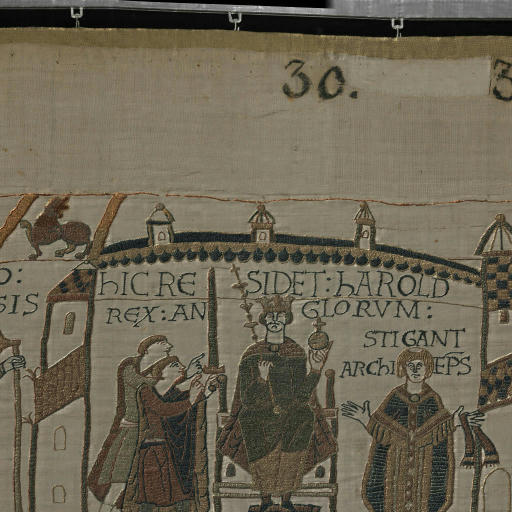 30.
O:
SIS
HIC RE SIDET: HAROLD
REX: AN GLORVM:
STIGANT
ARCHI EPS